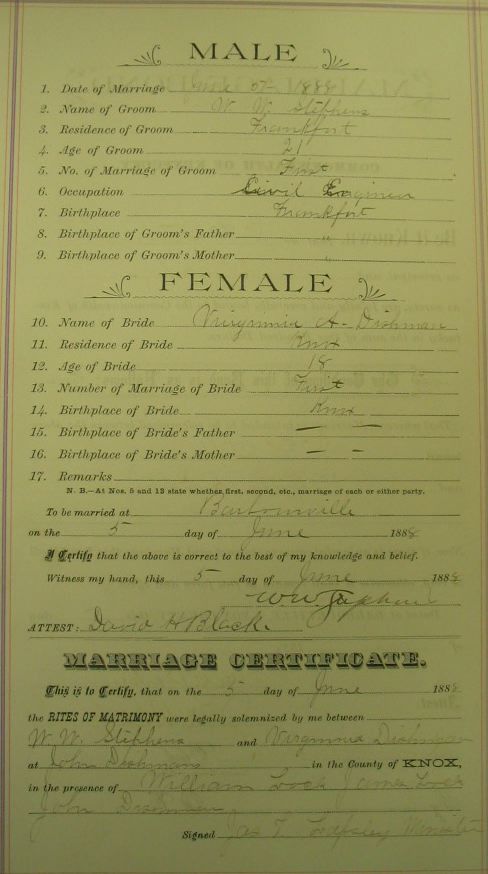 MALE
1. Date of Marriage June 5th 1888
2. Name of Groom W. W. Stephens
3. Residence of Groom Frankfort
4. Age of Groom 21
5. No. of Marriage of Groom First
6. Occupation Civil Engineer
7. Birthplace Frankfort
8. Birthplace of Groom's Father "
9. Birthplace of Groom's Mother "
FEMALE
10. Name of Bride Virginnia A. Dishman
11. Residence of Bride Knox
12. Age of Bride 18
13. Number of Marriage of Bride First
14. Birthplace of Bride Knox
15. Birthplace of Bride's Father — —
16. Birthplace of Bride's Mother — —
17. Remarks
N. B.—At Nos. 5 and 13 state whether first, second, etc., marriage of each or either party.
To be married at Barbourville
on the 5 day of June 1888
I Certify that the above is correct to the best of my knowledge and belief.
Witness my hand, this 5 day of June 1888
W. W. Stephens
ATTEST: David H Black.
MARRIAGE CERTIFICATE.
This is to Certify, that on the 5 day of June 1888
the RITES OF MATRIMONY were legally solemnized by me between
W. W. Stephens and Virginnia Dishman
at John Dishmans in the County of KNOX,
in the presence of William Lock James
John Dishman
Signed Jas T. Minister